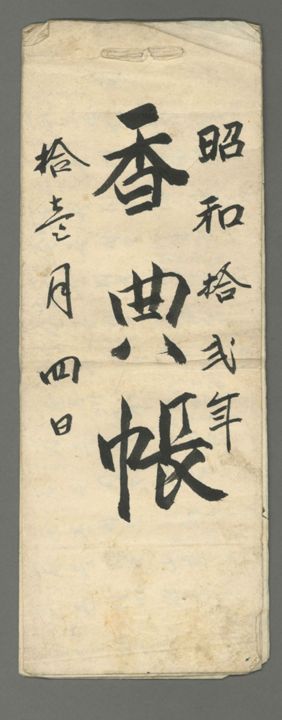 昭和拾弐年
香典帳
拾壱月四日